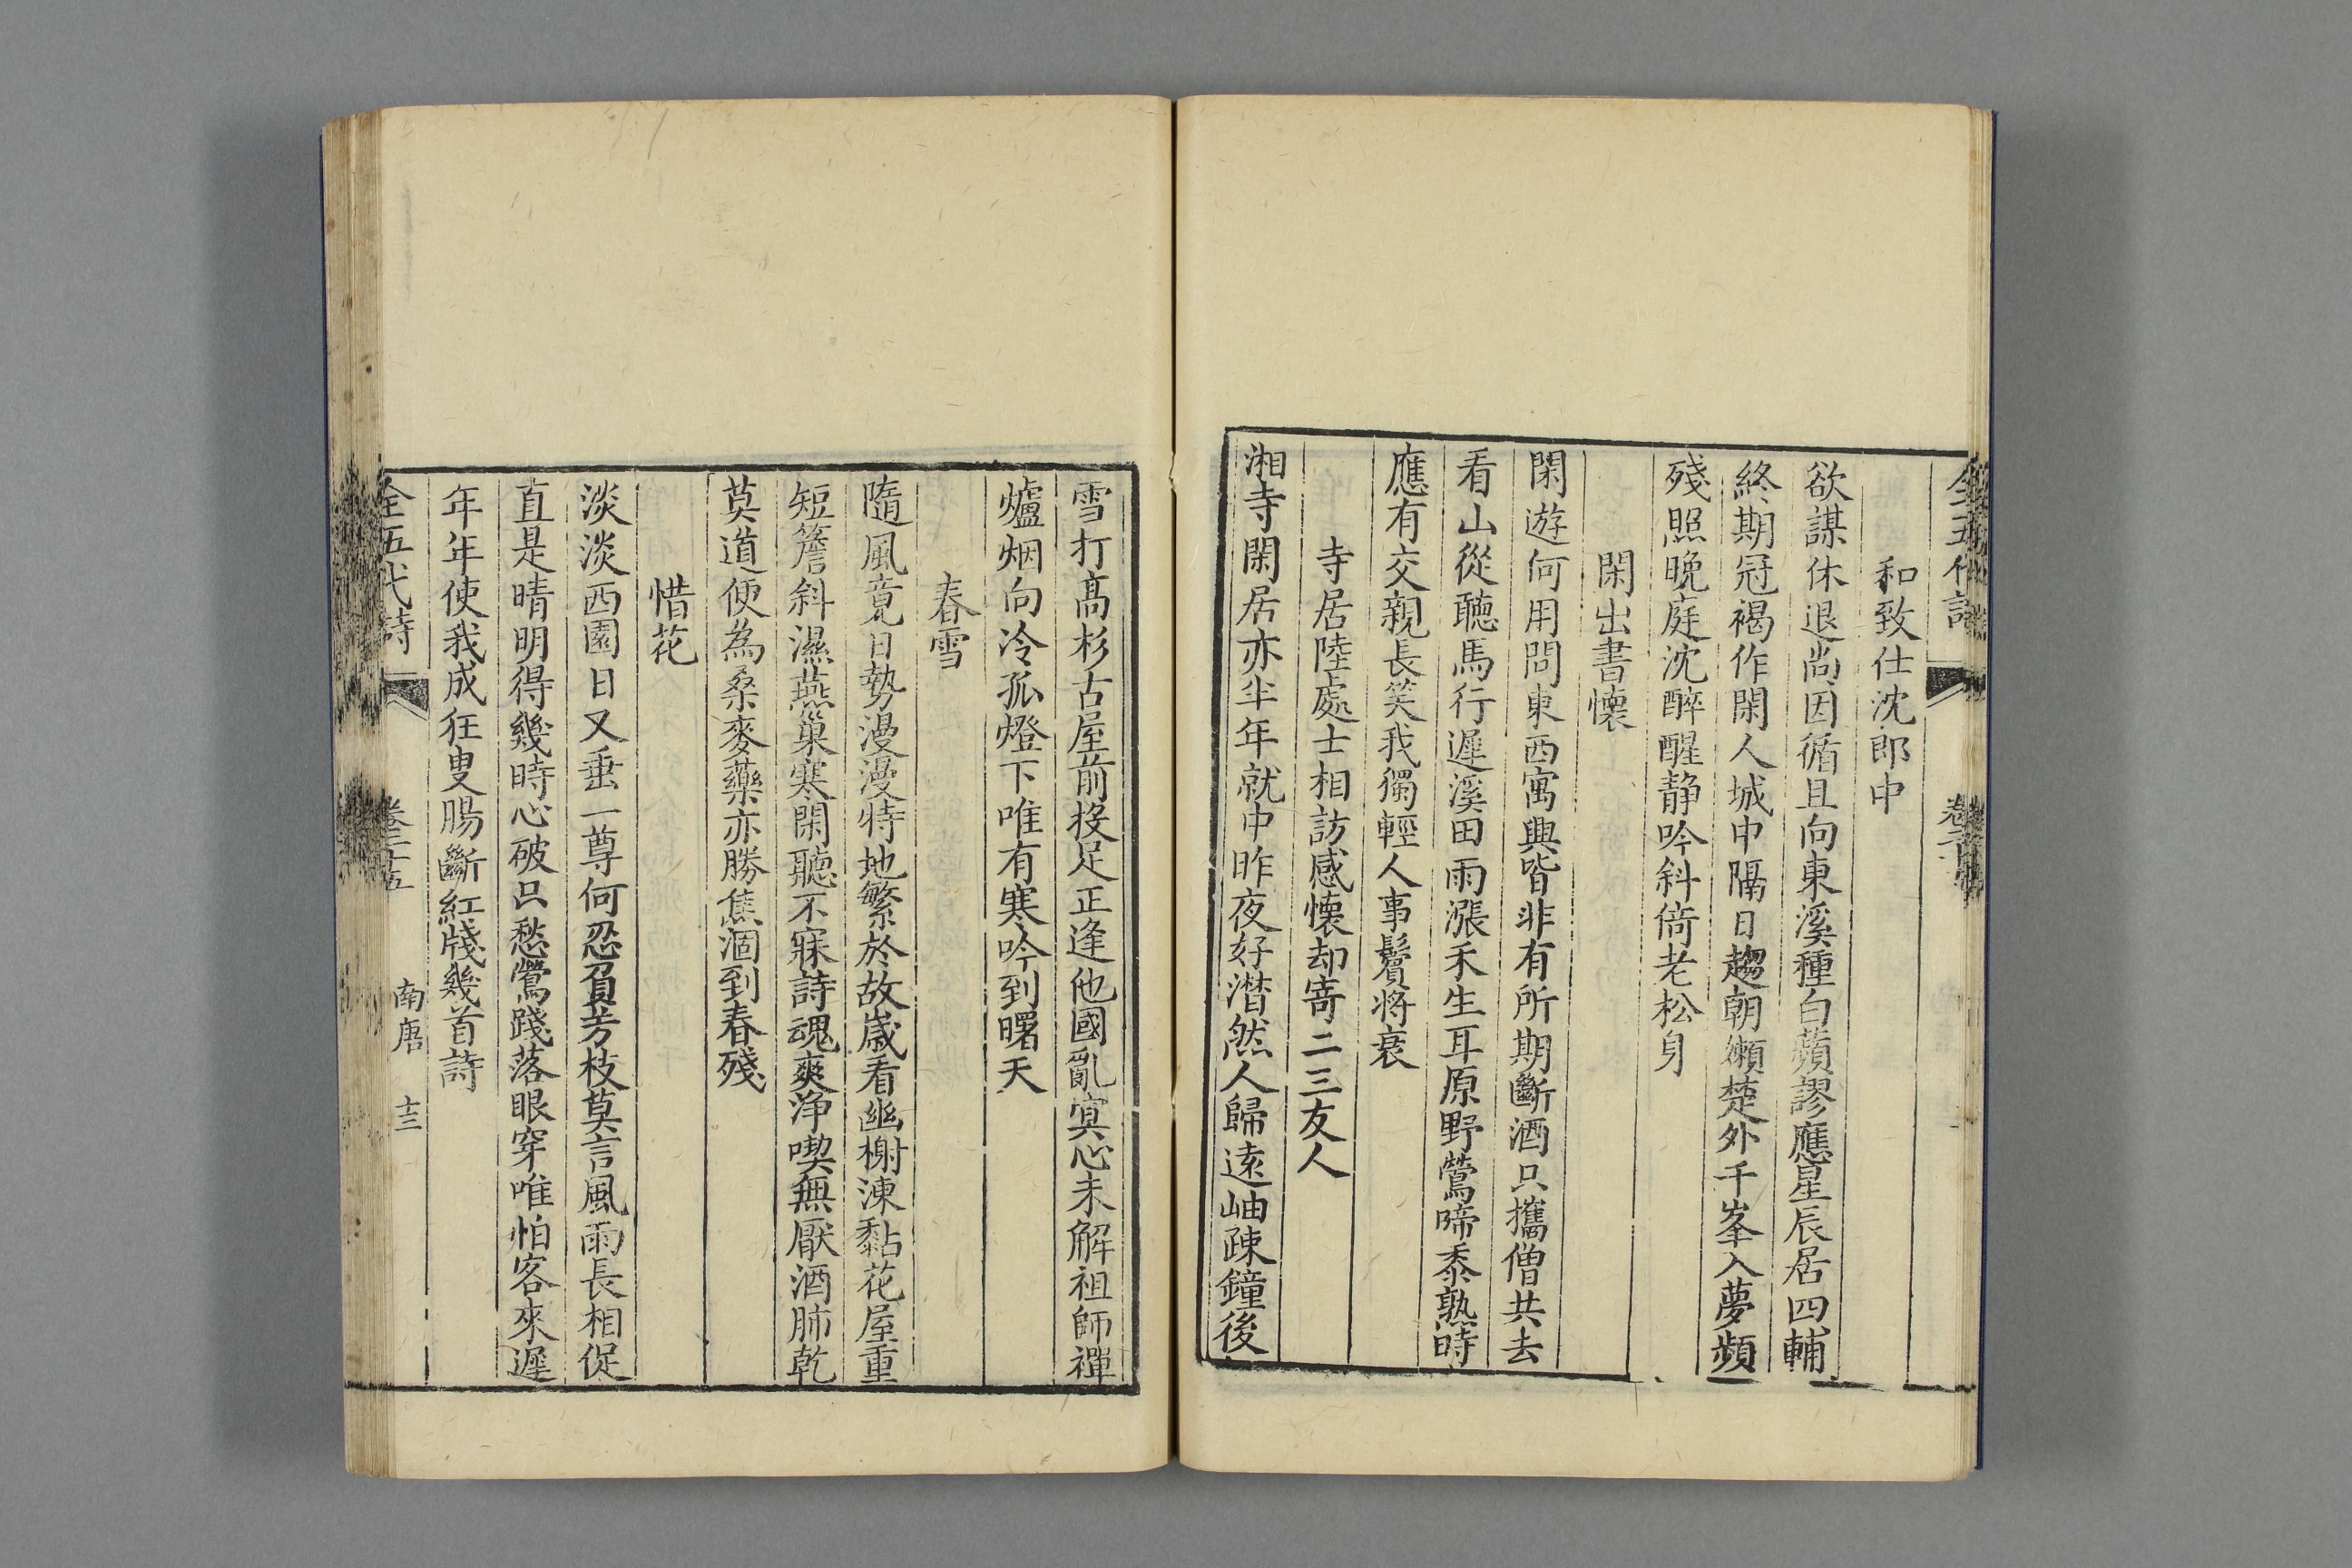 和致仕沈郎中
欲謀休退尚因循且向東溪種白蘋謬應星辰居四輔
終期冠褐作閑人城中隔日趨朝嬾楚外千峯入夢頻
殘照晚庭沈醉醒静吟斜倚老松身
閑出書懐
閑遊何用問東西寓興皆非有所期斷酒只攜僧共去
看山從聽馬行遲溪田雨漲禾生耳原野鶯啼黍熟時
應有交親長笑我獨輕人事鬢将衰
寺居陸處士相訪感懐却寄二三友人
湘寺閑居亦半年就中昨夜好潸然人歸遠岫疎鐘後
雪打髙杉古屋前投足正逢他國亂㝠心未解祖師禪
爐烟向冷孤燈下唯有寒吟到曙天
春雪
隨風竟日勢漫漫特地繁於故歲看幽榭凍黏花屋重
短簷斜濕燕巢寒閑聽不寐詩魂爽浄喫無厭酒肺乾
莫道便為桑麥藥亦勝焦涸到春殘
惜花
淡淡西園日又垂一尊何忍負芳枝莫言風雨長相促
直是晴明得幾時心破只愁鶯踐落眼穿唯怕客來遲
年年使我成狂叟腸斷紅牋幾首詩
全五代詩 卷三十五 南唐 十三